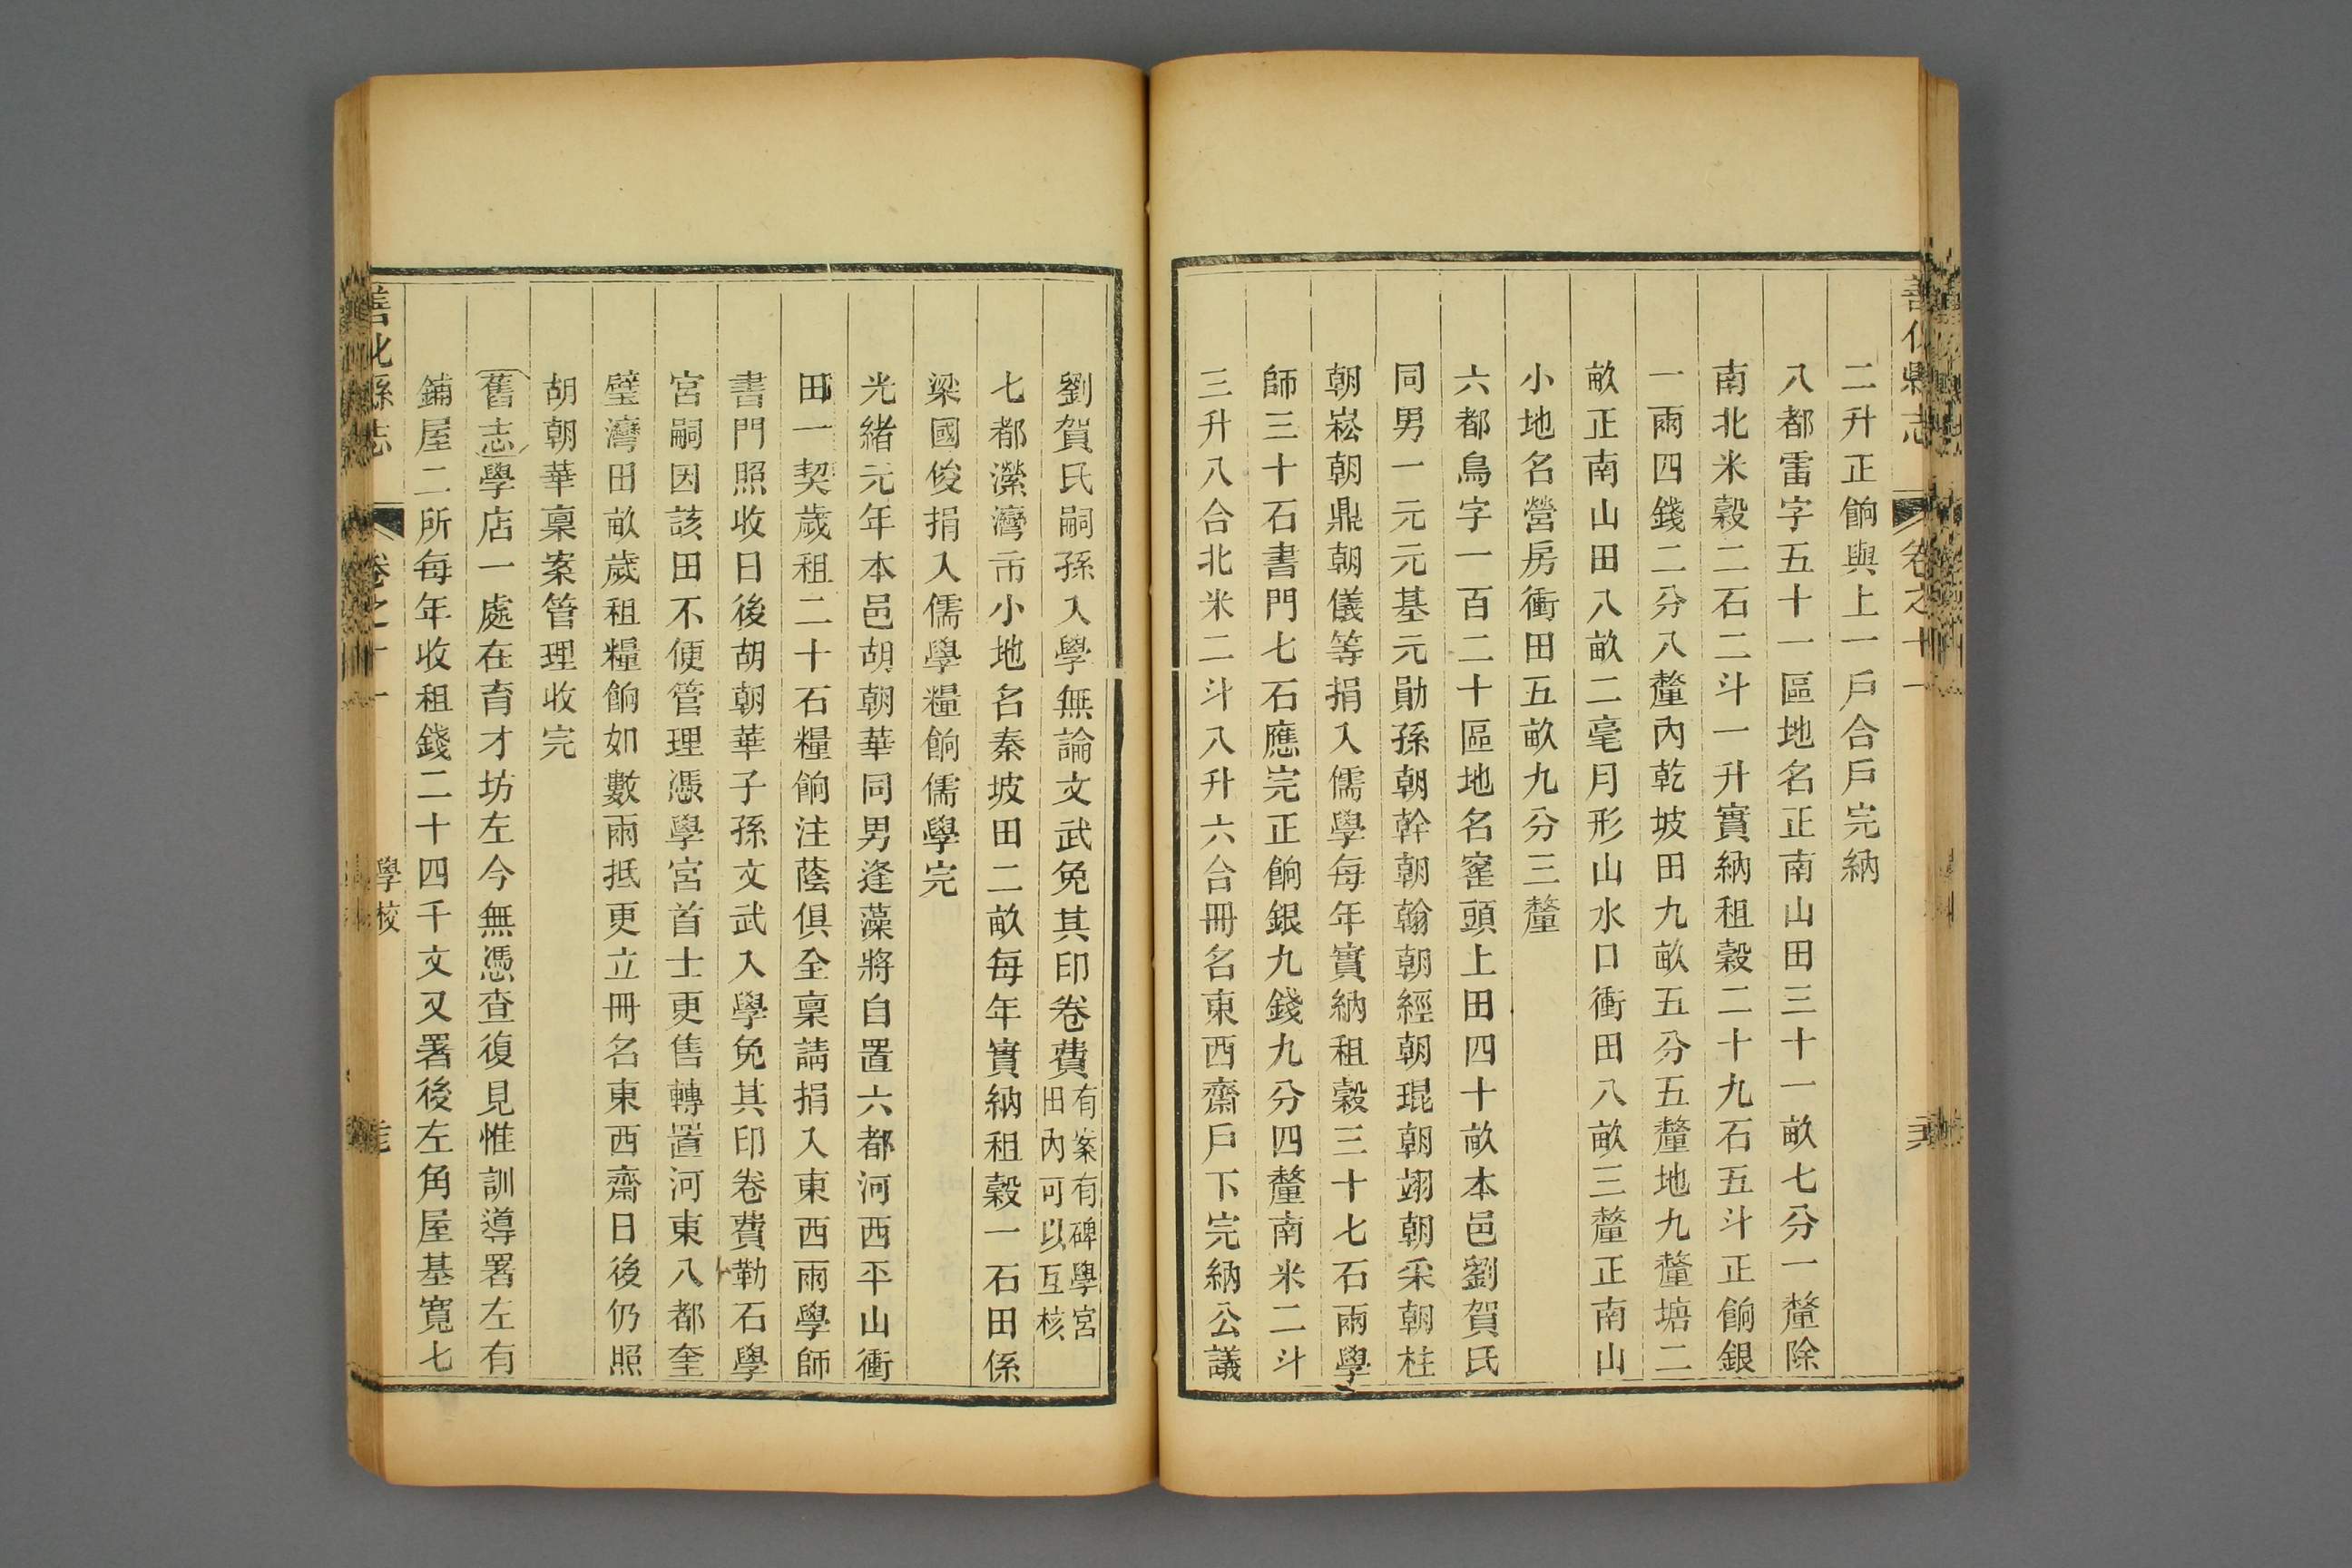 善化縣志
卷之十一
二升正餉與上一戶合戶完納
八都雷字五十一區地名正南山田三十一畝七分一釐除
南北米穀二石二斗一升實納租穀二十九石五斗正餉銀
一兩四錢二分八釐內乾坡田九畝五分五釐地九釐塘二
畝正南山田八畝二毫月形山水口衝田八畝三釐正南山
小地名營房衝田五畝九分三釐
六都鳥字一百二十區地名窰頭上田四十畝本邑劉賀氏
同男一元元基元勛孫朝幹朝翰朝經朝琨朝翊朝采朝柱
朝崧朝鼎朝儀等捐入儒學每年實納租穀三十七石兩學
師三十石書門七石應完正餉銀九錢九分四釐南米二斗
三升八合北米二斗八升六合冊名東西齋戶下完納公議
劉賀氏嗣孫入學無論文武免其印卷費有案有碑學宮
田內可以互核
七都濚灣市小地名秦坡田二畝每年實納租穀一石田係
梁國俊捐入儒學糧餉儒學完
光緒元年本邑胡朝華同男逢藻將自置六都河西平山衝
田一契歲租二十石糧餉注蔭俱全稟請捐入東西兩學師
書門照收日後胡朝華子孫文武入學免其印卷費勒石學
宮嗣因該田不便管理憑學宮首士更售轉置河東八都奎
璧灣田畝歲租糧餉如數兩抵更立冊名東西齋日後仍照
胡朝華稟案管理收完
舊志學店一處在育才坊左今無憑查復見惟訓導署左有
鋪屋二所每年收租錢二十四千文又署後左角屋基寬七
善化縣志
卷之十一
學校